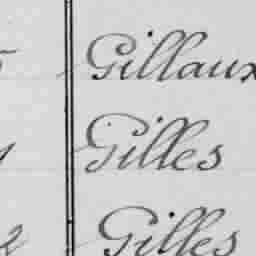 Gillaux
Gilles
2 Gilles